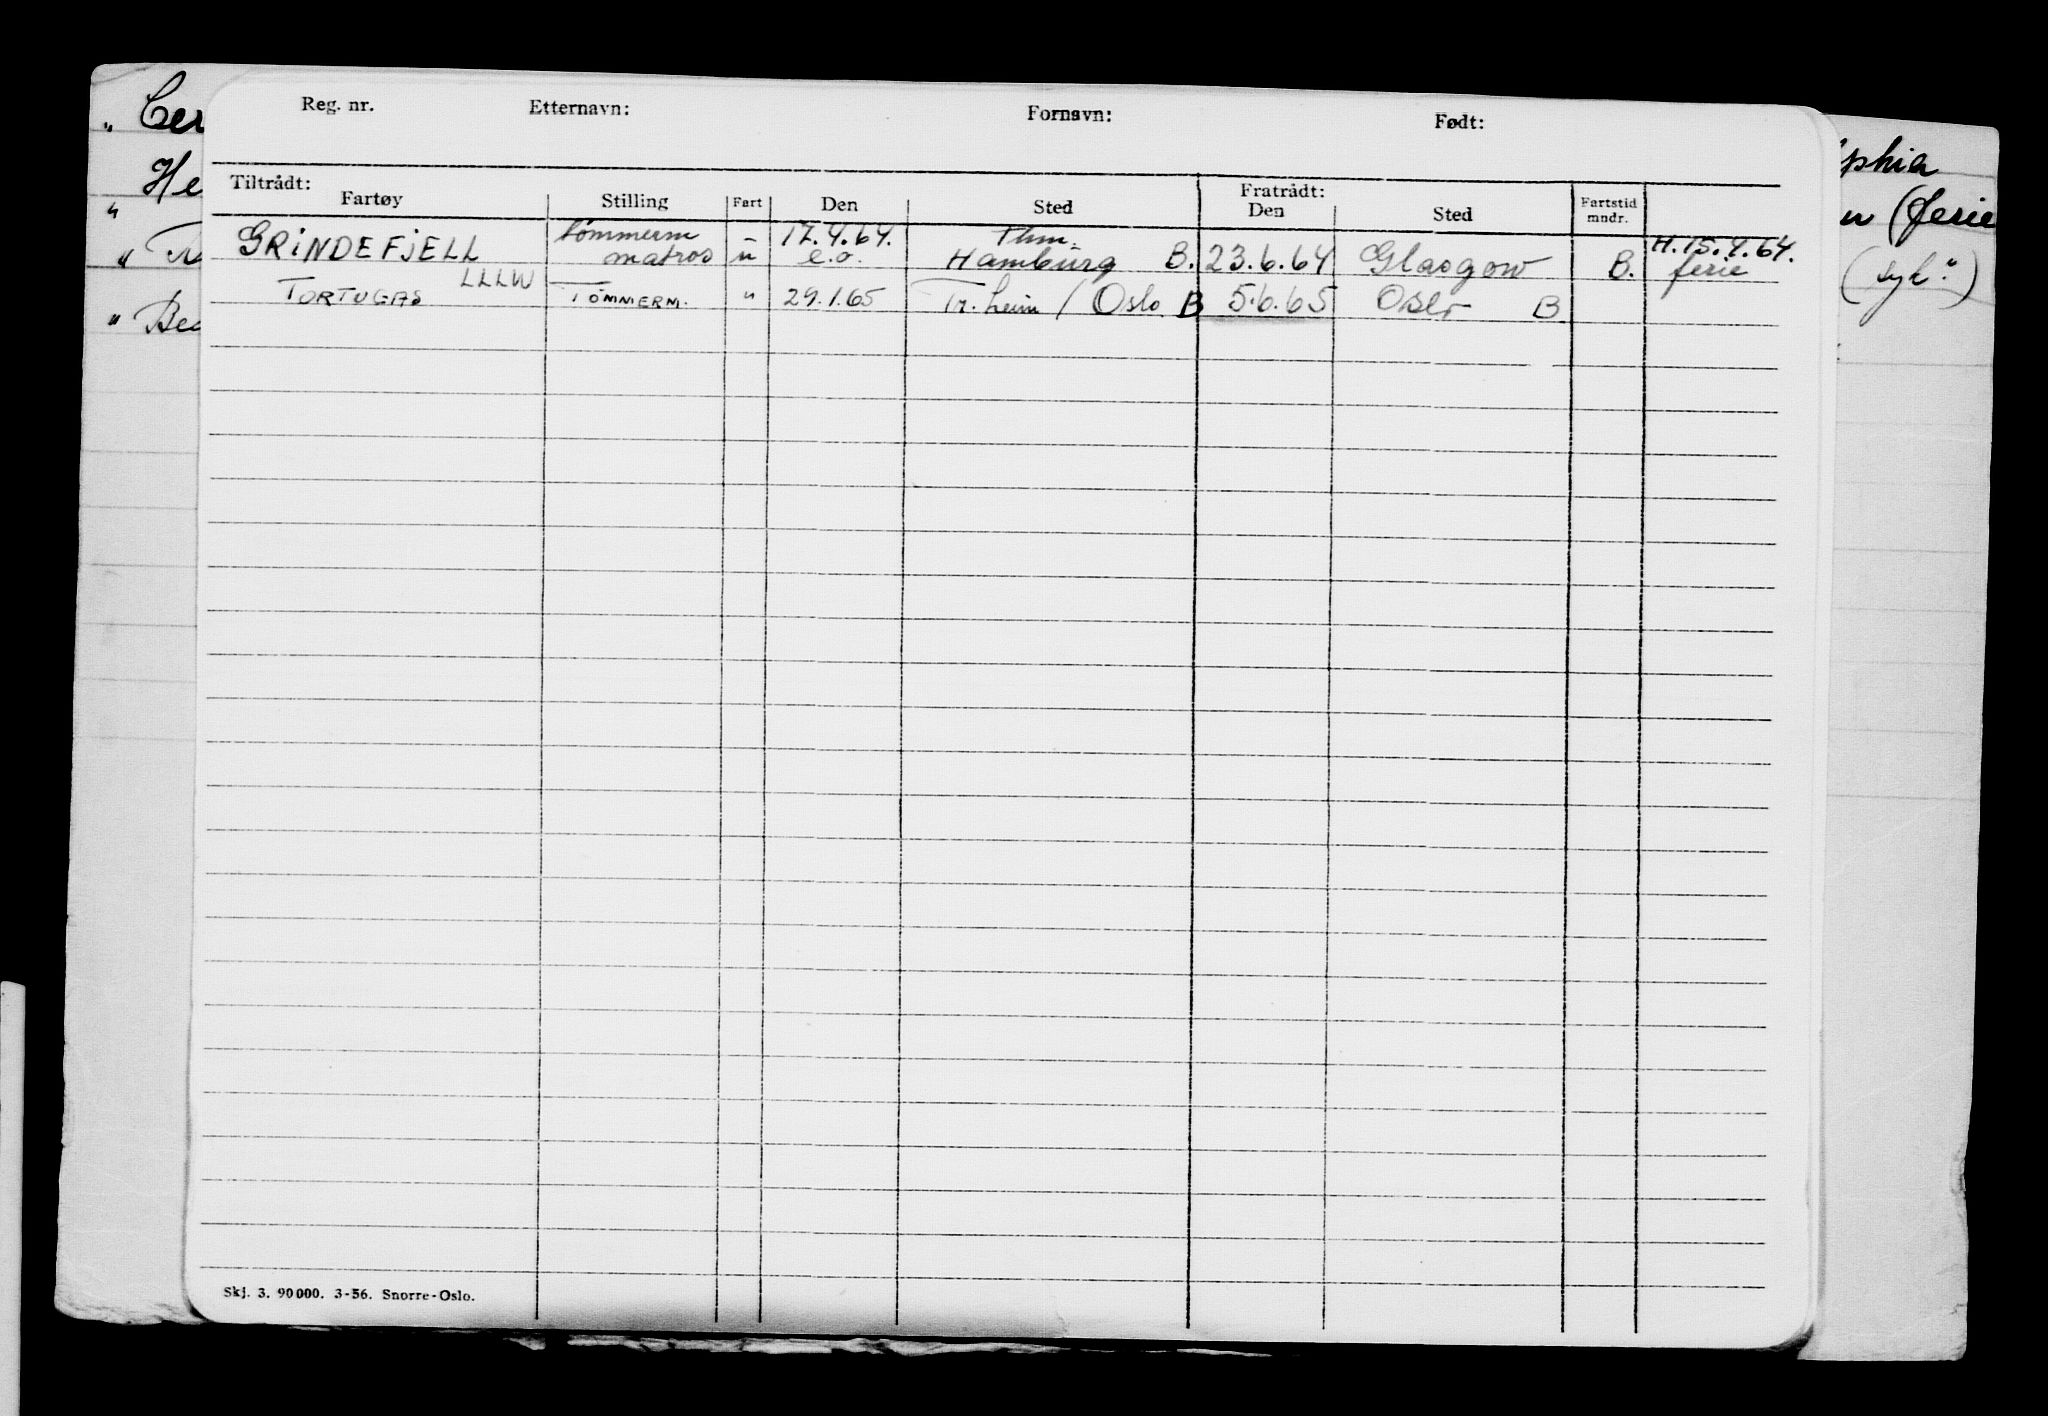 Reg. nr. Etternavn: Fornavn: Født:
Tiltrådt: Fratrådt:
Fartøy Stilling Fart Den Sted Den Sted Fartstid mndr.
GRINDEFJELL tömmerm matros u 17.4.64. e.o. Hamburg B. 23.6.64 Glasgow B. H.15.4.64. ferie
LLLW
TORTUGAS TÖMMERM. " 29.1.65 Tr.heim / Oslo B 5.6.65 Oslo B
Skj. 3. 90000. 3-56. Snorre-Oslo.
" Cer
He
"
"
" Bec
phia
(ferie
(syk.")